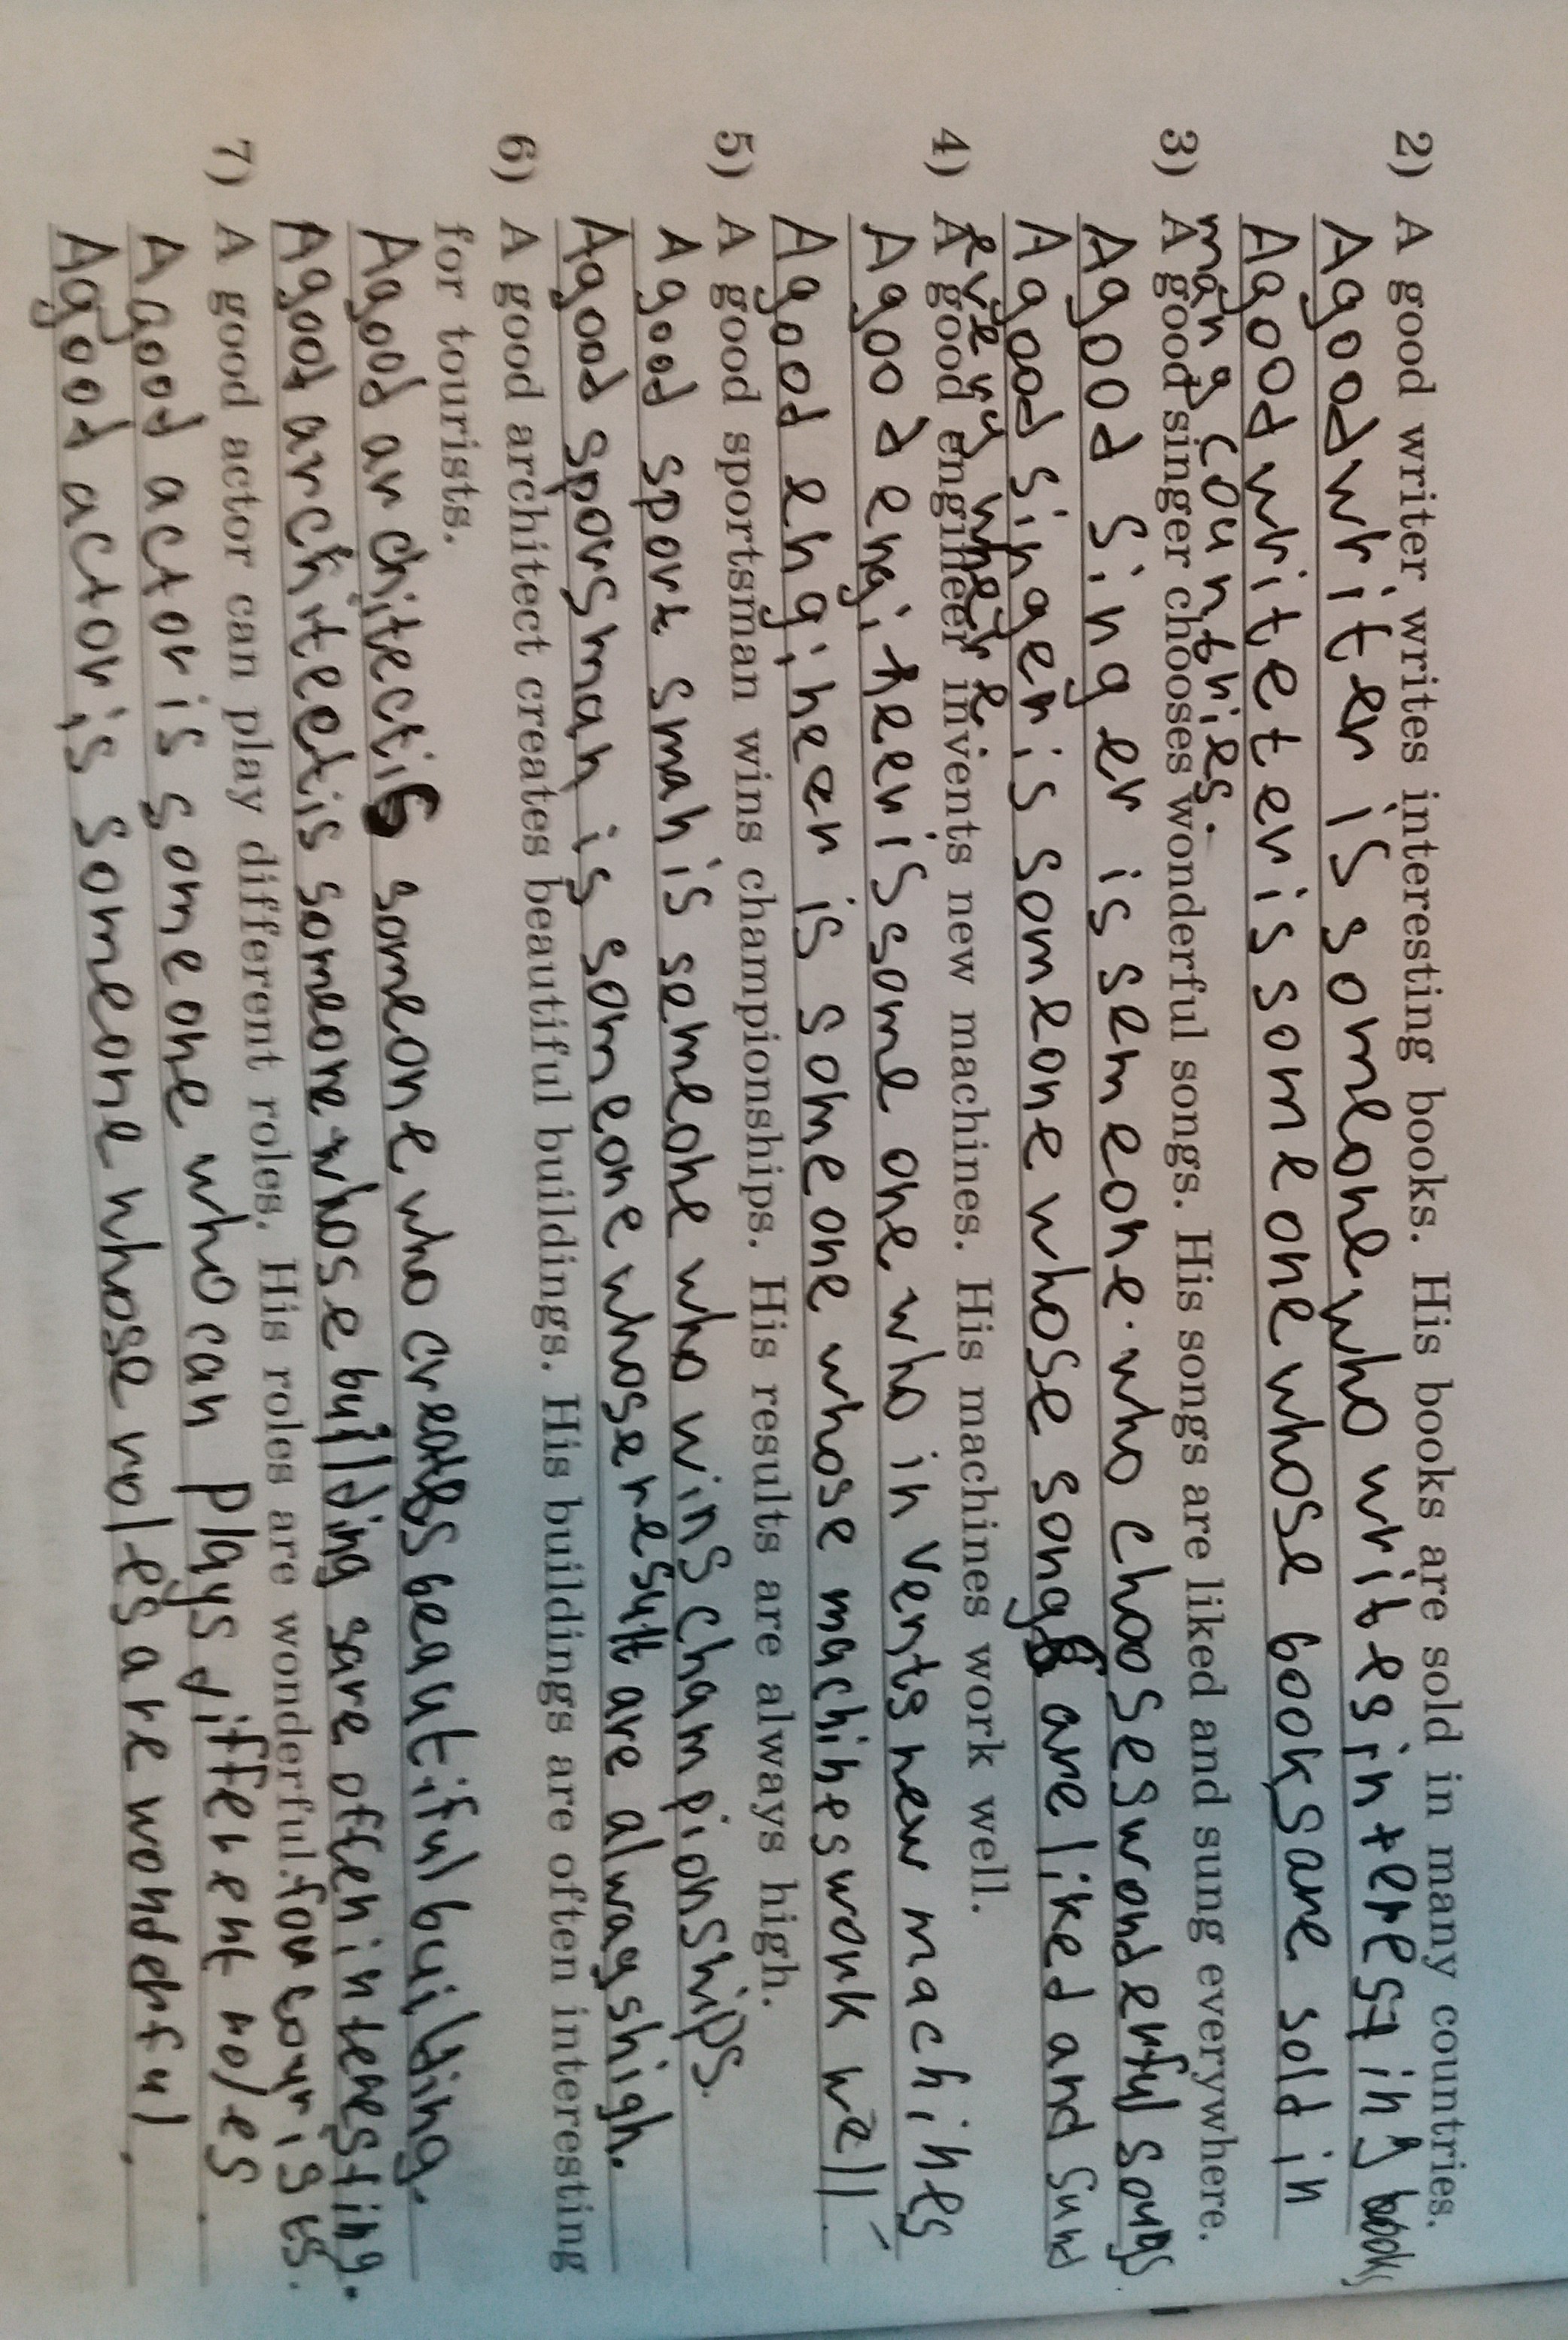 2) A good writer writes interesting books. His books are sold in many countries.
A good writer is someone who writes interesting books
A good writeter is someone whose books are sold in
many countries.
3) A good singer chooses wonderful songs. His songs are liked and sung everywhere.
A good singer is semeone. who chooses wonderful songs.
A good singer is someone whose songs are liked and sung
everywhere
4) A good engineer invents new machines. His machines work well.
A good engineer is someone who invents new machines
A good engineer is someone whose machines work well.
5) A good sportsman wins championships. His results are always high.
A good sportsman is semeone who wins championships.
A good sporsman is someone whose result are always high.
6) A good architect creates beautiful buildings. His buildings are often interesting
for tourists.
A good architect is someone who creates beautiful building.
A good architect is someone whose buildings are often interesting.
for tourists.
7) A good actor can play different roles. His roles are wonderful.
A good actor is someone who can plays different roles
A good actor is someone whose roles are wonderful.